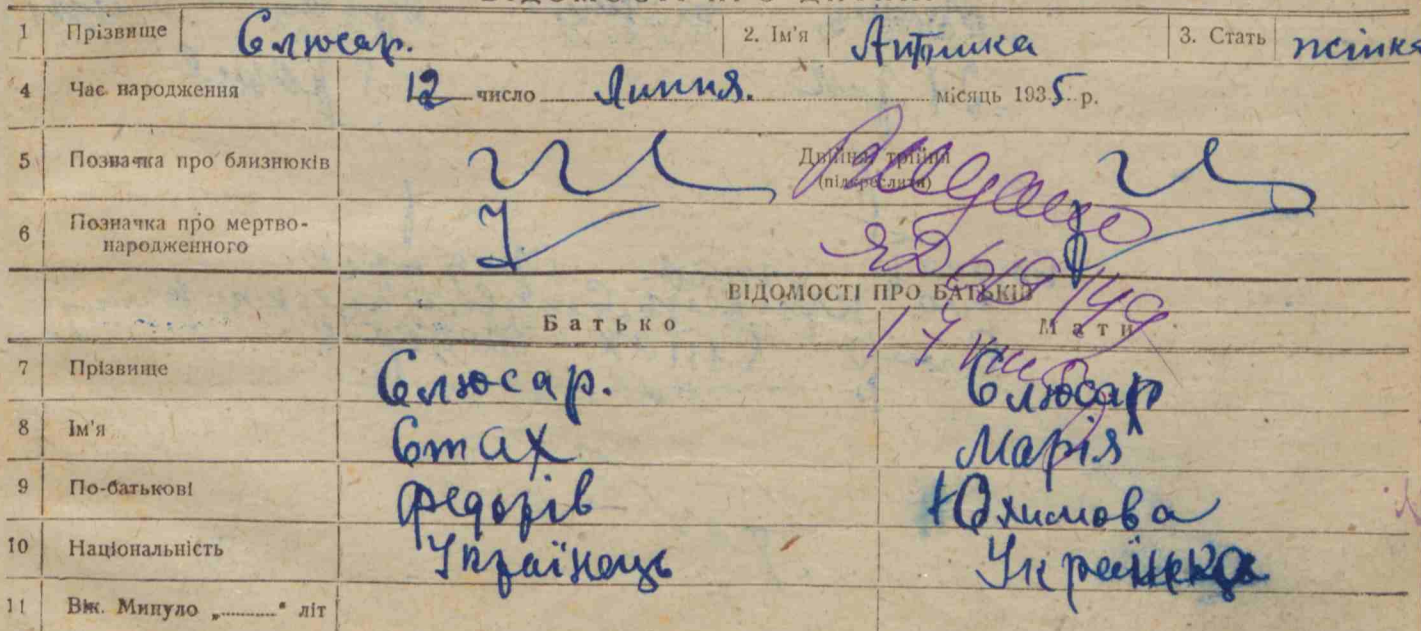 1 Прізвище Слюсар. 2. Ім'я 3. Стать жінка
4 Час народження 12 число Липня. місяць 1935 р.
5 Позначка про близнюків Двійня, трійня
(підкреслити)
6 Позначка про мертво-
народженного
Видано
ВІДОМОСТІ ПРО БАТЬКІВ
Батько Мати
7 Прізвище Слюсар. Слюсар
8 Ім'я Стах Марія
9 По-батькові Федорів Юхимова
10 Національність Українець Українка
11 Вік. Минуло „........“ літ